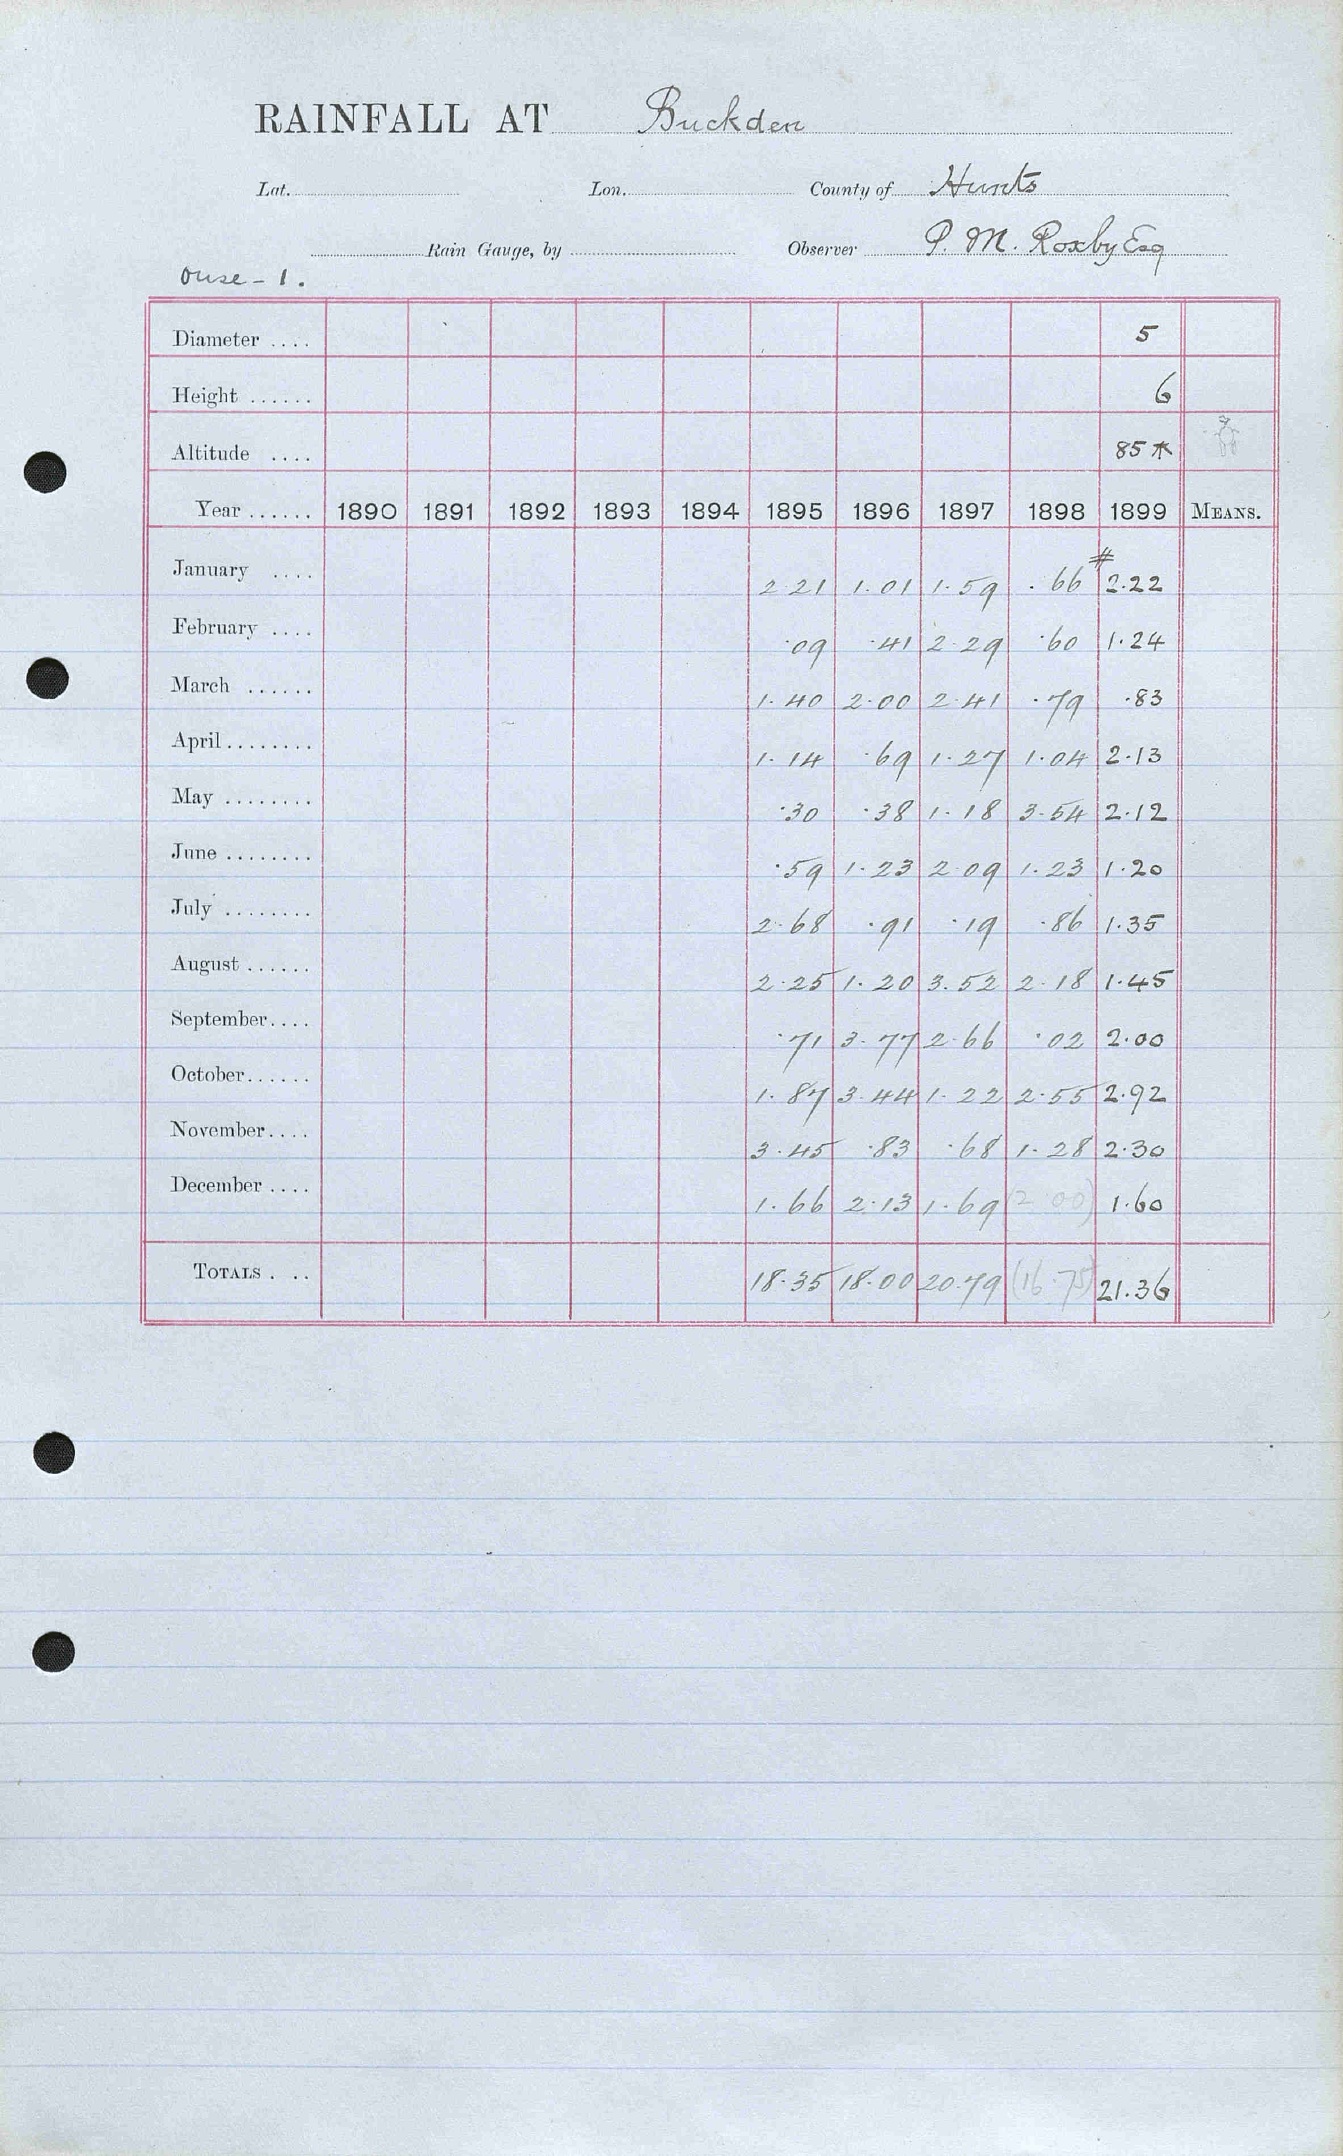 RAINFALL AT Buckden
Lat. Lon. County of Hunts
Rain Gauge, by Observer P. M. Roxby Esq
Ouse - 1.
Diameter .... 5
Height ...... 6
Altitude .... 85 *
Year ...... 1890 1891 1892 1893 1894 1895 1896 1897 1898 1899 MEANS.
January .... 2.21 1.01 1.59 .66 # 2.22
February .... .09 .41 2.29 .60 1.24
March ...... 1.40 2.00 2.41 .79 .83
April ........ 1.14 .69 1.27 1.04 2.13
May ........ .30 .38 1.18 3.54 2.12
June ........ .59 1.23 2.09 1.23 1.20
July ........ 2.68 .91 .19 .86 1.35
August ...... 2.25 1.20 3.52 2.18 1.45
September.... .71 3.77 2.66 .02 2.00
October...... 1.87 3.44 1.22 2.55 2.92
November.... 3.45 .83 .68 1.28 2.30
December .... 1.66 2.13 1.69 (2.00) 1.60
TOTALS . .. 18.35 18.00 20.79 (16.75) 21.36